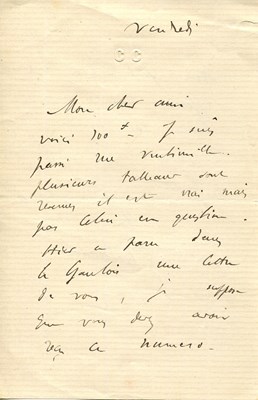 vendredi
Mon cher ami
voici 300 f - Je suis
passé rue Vintimille.
plusieurs tableaux sont
revenus il est vrai mais
pas celui en question.
Hier a paru dans
le Gaulois une lettre
de vous, je suppose
que vous devez avoir
reçu ce numero.